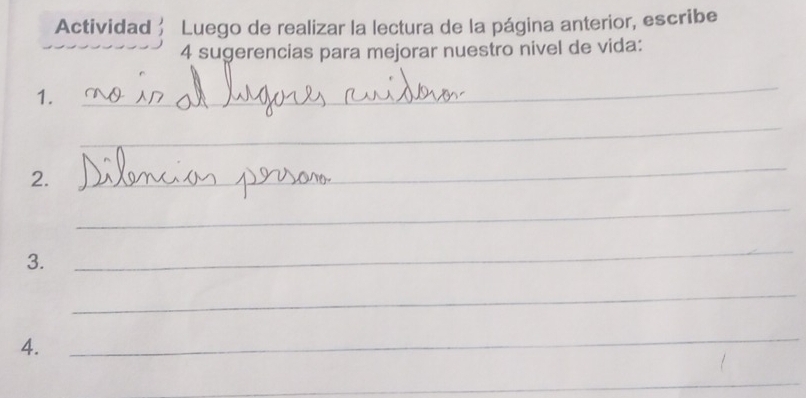 Actividad Luego de realizar la lectura de la página anterior, escribe
4 sugerencias para mejorar nuestro nivel de vida:
1. no ir al lugares ruidoro.
2. Silencian persona.
3.
4.